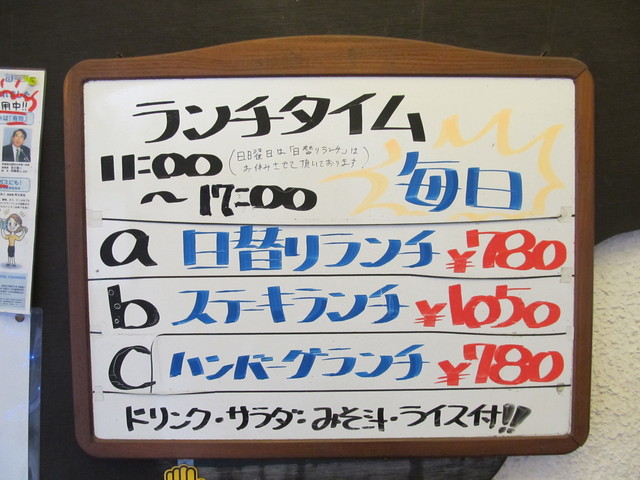 ランチタイム
11:00
(日曜日は「日替リランチ」は
お休みさせて頂いております)
〜17:00
毎日
a 日替りランチ ¥780
b ステーキランチ ¥1050
c ハンバーグランチ ¥780
ドリンク・サラダ・みそ汁・ライス付!!